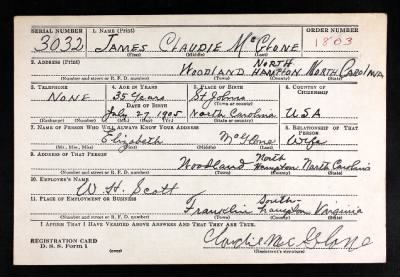 SERIAL NUMBER 1. NAME (Print) ORDER NUMBER
3032 JAMES CLAUDIE McGLONE 1803
(First) (Middle) (Last)
2. ADDRESS (Print)
WOODLAND NORTH HAMPTON NORTH CAROLINA
(Number and street or R. F. D. number) (Town) (County) (State)
3. TELEPHONE 4. AGE IN YEARS 5. PLACE OF BIRTH 6. COUNTRY OF CITIZENSHIP
NONE 35 Years St Johns
DATE OF BIRTH (Town or county)
July 27, 1905 North Carolina USA
(Exchange) (Number) (Mo.) (Day) (Yr.) (State or country)
7. NAME OF PERSON WHO WILL ALWAYS KNOW YOUR ADDRESS 8. RELATIONSHIP OF THAT PERSON
Elizabeth McGlone Wife
(Mr., Mrs., Miss) (First) (Middle) (Last)
9. ADDRESS OF THAT PERSON
Woodland North Hampton North Carolina
(Number and street or R. F. D. number) (Town) (County) (State)
10. EMPLOYER'S NAME
W. H. Scott
11. PLACE OF EMPLOYMENT OR BUSINESS
Franklin South-hampton Virginia
(Number and street or R. F. D. number) (Town) (County) (State)
I AFFIRM THAT I HAVE VERIFIED ABOVE ANSWERS AND THAT THEY ARE TRUE.
REGISTRATION CARD
D. S. S. Form 1 (over) Claudie McGlone
(Registrant's signature)